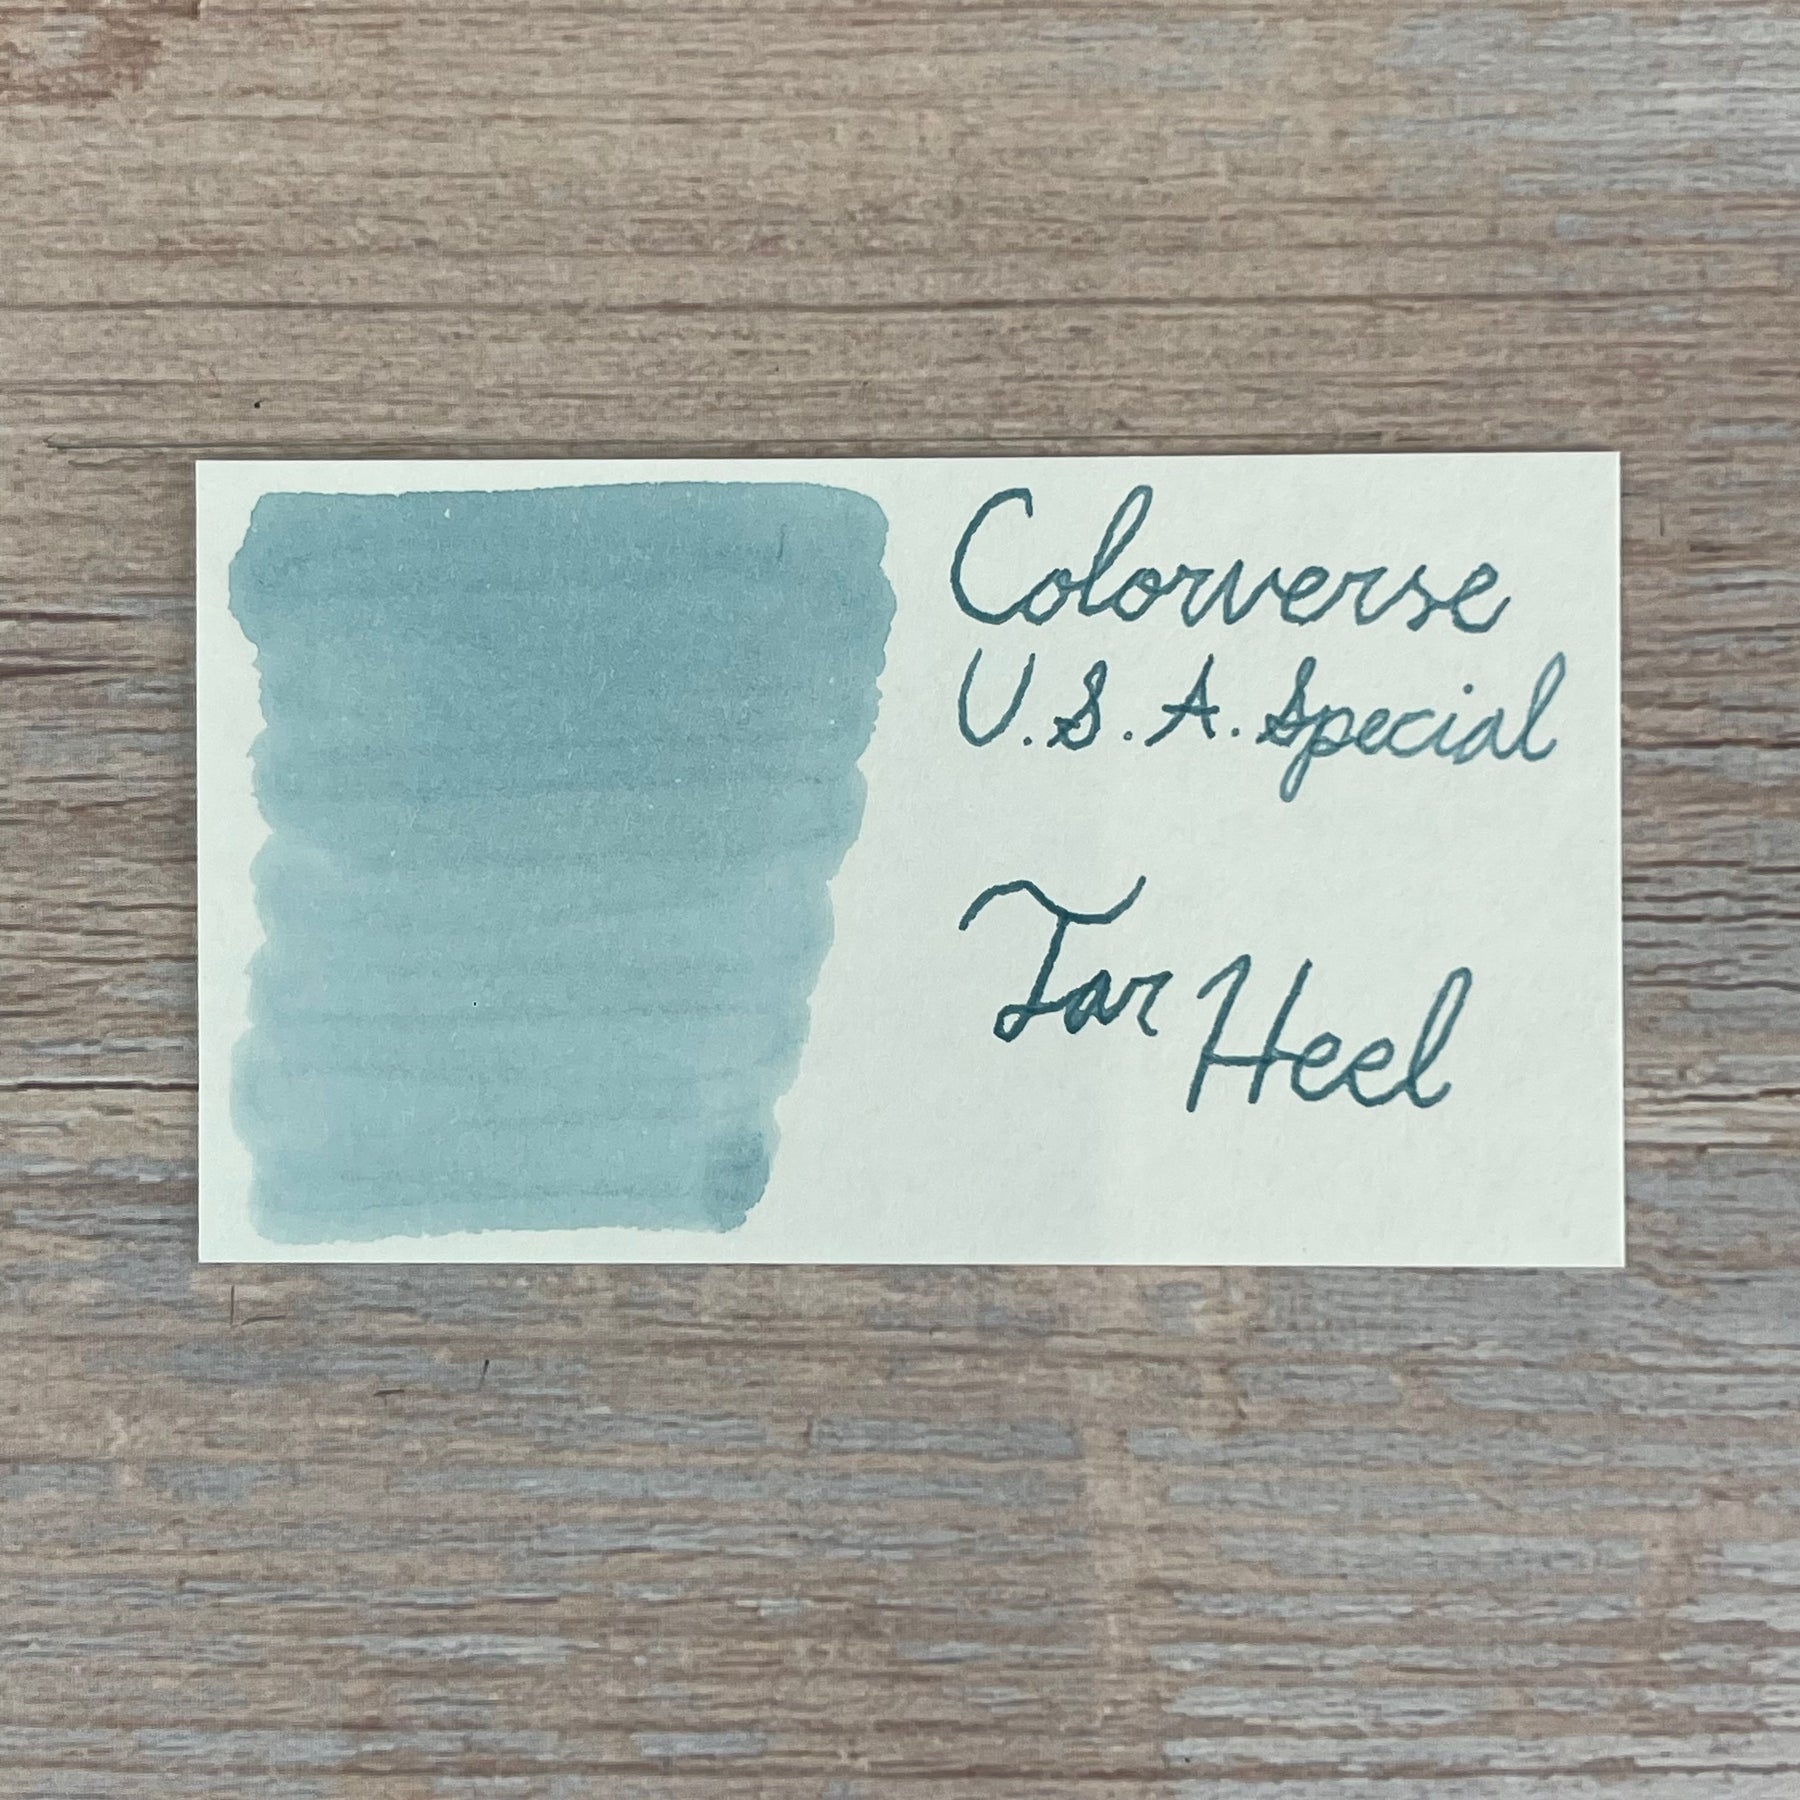 Colorverse
U.S.A. Special
Tar Heel